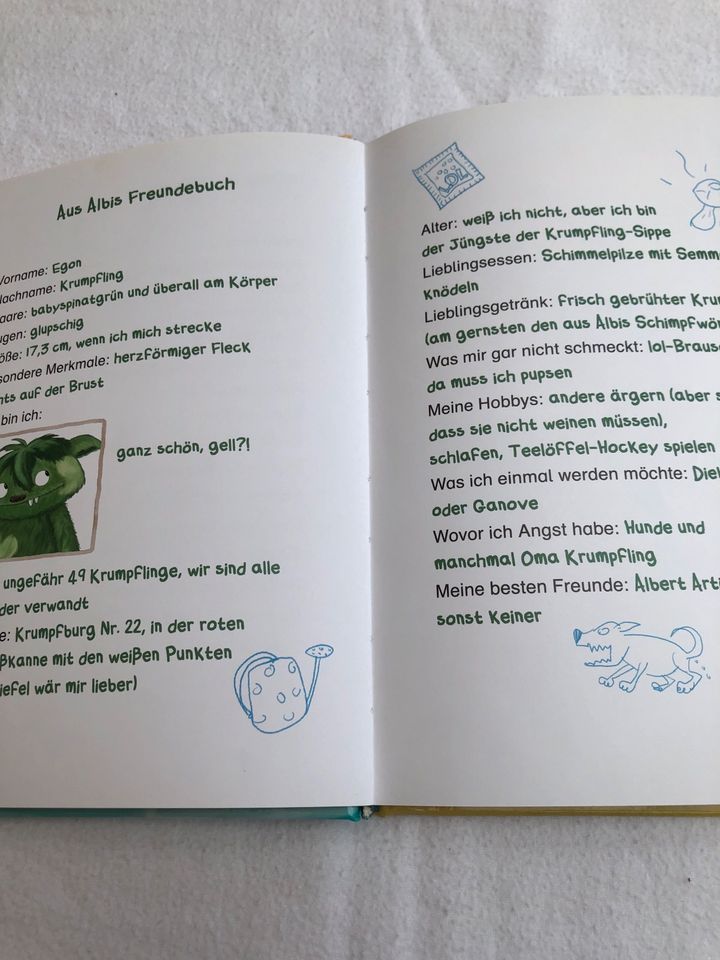 Aus Albis Freundebuch
Vorname: Egon
Nachname: Krumpfling
aare: babyspinatgrün und überall am Körper
ugen: glupschig
öße: 17,3 cm, wenn ich mich strecke
sondere Merkmale: herzförmiger Fleck
hts auf der Brust
bin ich:
ganz schön, gell?!
ungefähr 49 Krumpflinge, wir sind alle
der verwandt
e: Krumpfburg Nr. 22, in der roten
ßkanne mit den weißen Punkten
iefel wär mir lieber)
LOL
Alter: weiß ich nicht, aber ich bin
der Jüngste der Krumpfling-Sippe
Lieblingsessen: Schimmelpilze mit Semm
Knödeln
Lieblingsgetränk: frisch gebrühter Kru
(am gernsten den aus Albis Schimpfwör
Was mir gar nicht schmeckt: lol-Brause
da muss ich pupsen
Meine Hobbys: andere ärgern (aber s
dass sie nicht weinen müssen),
schlafen, Teelöffel-Hockey spielen
Was ich einmal werden möchte: Die
oder Ganove
Wovor ich Angst habe: Hunde und
manchmal Oma Krumpfling
Meine besten Freunde: Albert Arti
sonst Keiner